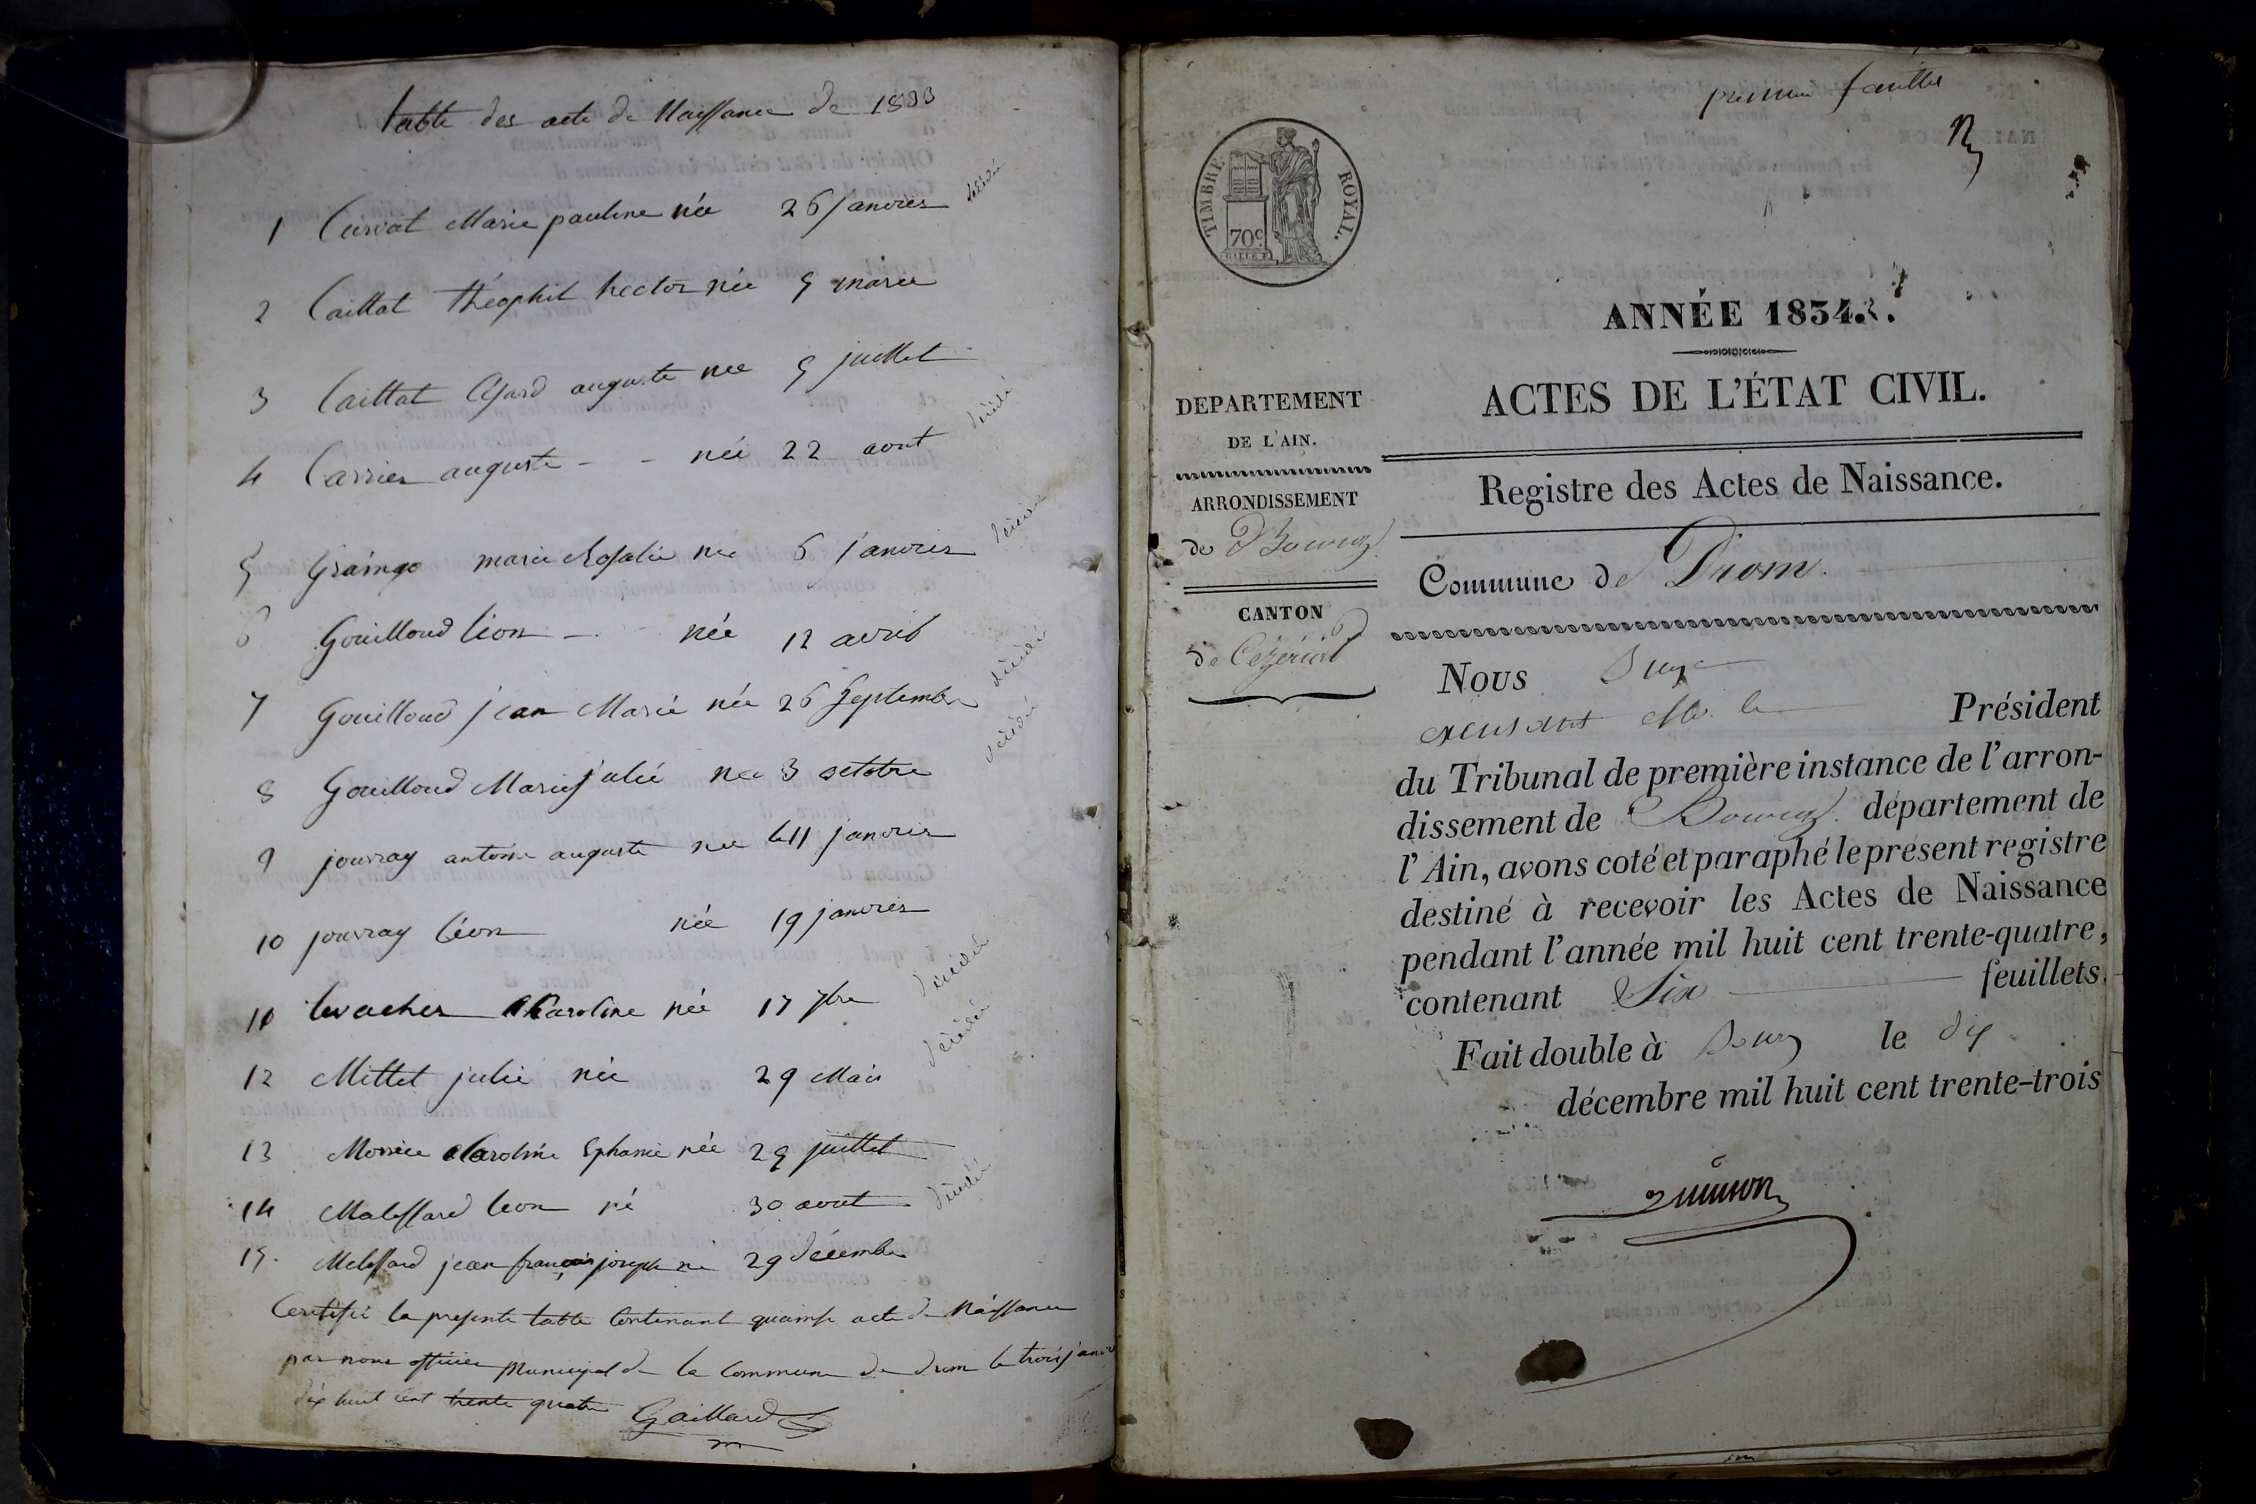 table des acte de Naissance de 1833
1 Curvat Marie pauline née 26 janvier décédé
2 Caillat théophil hector née 5 mars
3 Caillat Césard auguste née 5 juillet
4 Carrier auguste - - née 22 aout décédé
5 Grainge marie Rosalie née 6 janvier décédé
6 Gouilloud léon - née 12 avril
7 Gouilloud jean Marie née 26 septembre décédé
8 Gouilloud Marie julie née 3 octobre décédé
9 jouvray antoine auguste née le 11 janvier
10 jouvray léon née 19 janvier
11 levacher Caroline née 17 7bre décédé
12 Mittet julie née 29 Mars décédé
13 Caroline née 25 juillet
14 Malessard leon né 30 aout décédé
15. Melessard jean françois joseph né 29 décembre
Certifié la présente table contenant quainse acte de Naissance
par nous officier municipal de la commune de drom le trois janvier
dix huit cent trente quatre Gaillard
premier feuillet
TIMBRE ROYAL.
70c
ANNÉE 1834.
ACTES DE L'ÉTAT CIVIL.
DEPARTEMENT
DE L'AIN.
ARRONDISSEMENT
de Bourg
CANTON
de Ceyzériat
Registre des Actes de Naissance.
Commune de Drom
Nous Juge
Président
du Tribunal de première instance de l'arron-
dissement de Bourg département de
l'Ain, avons coté et paraphé le présent registre
destiné à recevoir les Actes de Naissance
pendant l'année mil huit cent trente-quatre,
contenant Six feuillets.
Fait double à Bourg le dix
décembre mil huit cent trente-trois